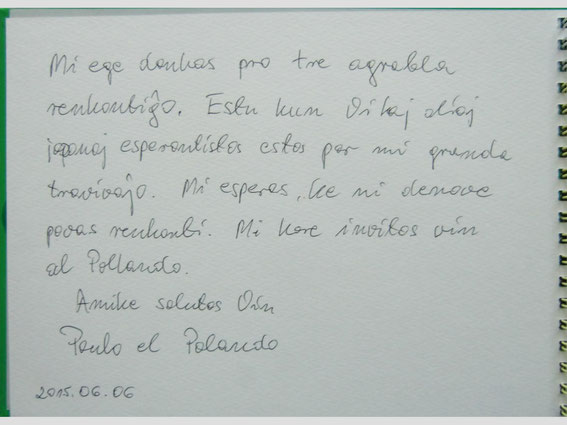 Mi ege dankas pro tre agrabla
renkontiĝo. Estu kun Vi kaj aliaj
japanaj esperantistos estos por mi granda
travivaĵo. Mi esperas, ke ni denove
povas renkonti. Mi kore invitos vin
al Pollando.
Amike salutos Vin
Paulo el Polando
2015.06.06